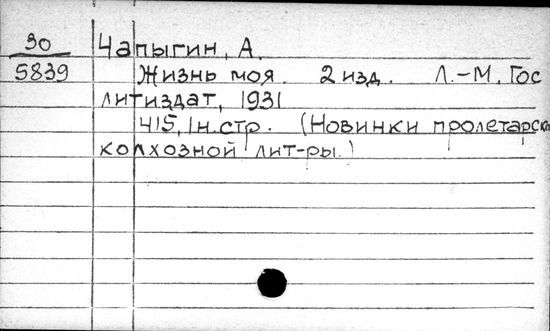 30 Чапыгин, А.
5839 Жизнь моя. 2 изд. Л.-М, Гос
литиздат, 1931
415, 1н.стр. (Новинки пролетарско
колхозной лит-ры.)